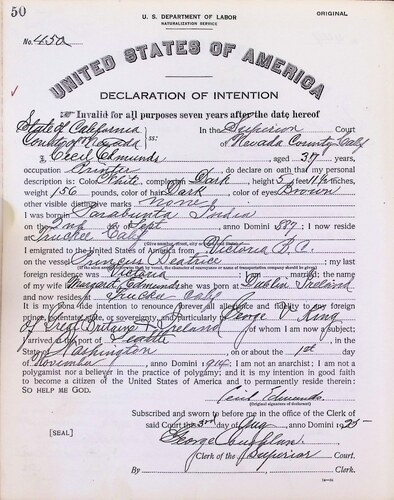 50
U. S. DEPARTMENT OF LABOR
NATURALIZATION SERVICE
ORIGINAL
No. 450
UNITED STATES OF AMERICA
DECLARATION OF INTENTION
Invalid for all purposes seven years after the date hereof
State of California
In the Superior Court
County of Nevada ss:
of Nevada County Calif
I, Cecil Edmunds, aged 37 years,
occupation Printer, do declare on oath that my personal
description is: Color White, complexion Dark, height 5 feet 11½ inches,
weight 156 pounds, color of hair Dark, color of eyes Brown
other visible distinctive marks none
I was born in India
on the 2nd day of Sept, anno Domini 1887; I now reside
at Truckee Calif
I emigrated to the United States of America from Victoria B.C.
on the vessel Princess Beatrice; my last
foreign residence was Victoria; I am married; the name
of my wife is Margaret Edmunds; she was born at Dublin Ireland
and now resides at Truckee Calif
It is my bona fide intention to renounce forever all allegiance and fidelity to any foreign
prince, potentate, state, or sovereignty, and particularly to George V King
of Great Britain & Ireland, of whom I am now a subject;
I arrived at the port of Seattle, in the
State of Washington, on or about the 1st day
of November, anno Domini 1914; I am not an anarchist; I am not a
polygamist nor a believer in the practice of polygamy; and it is my intention in good faith
to become a citizen of the United States of America and to permanently reside therein:
SO HELP ME GOD.
Cecil Edmunds
(Original signature of declarant)
Subscribed and sworn to before me in the office of the Clerk of
said Court this 3rd day of Aug, anno Domini 1925
[SEAL]
George
Clerk of the Superior Court.
By, Clerk.